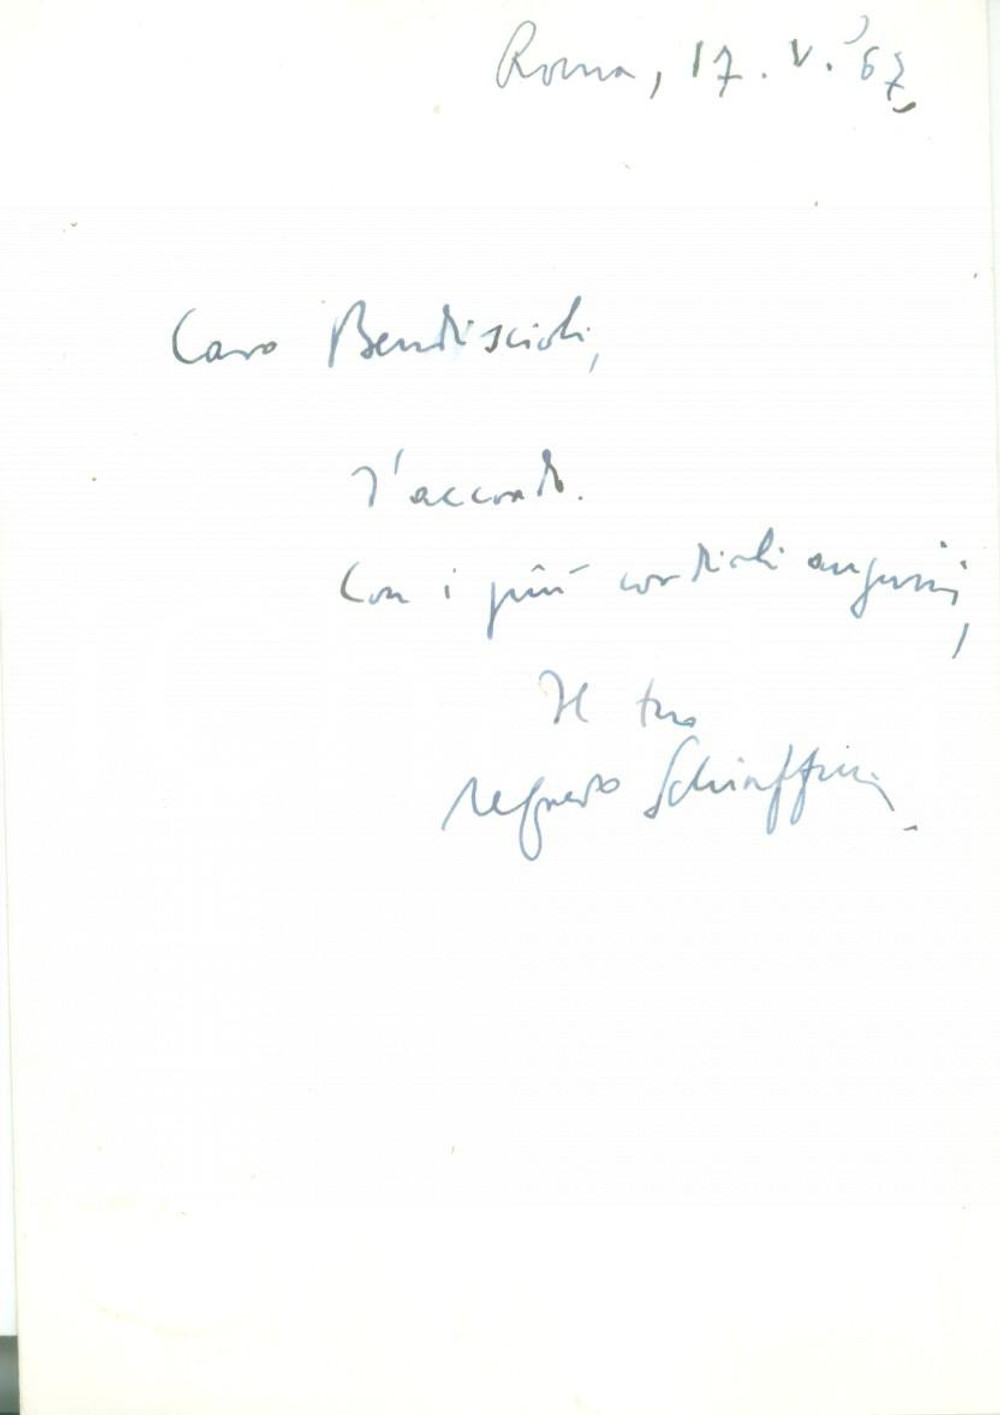 Roma, 17. V. '67.
Caro Bendiscioli,
D'accordo.
Con i più cordiali auguri,
Il tuo
Schiaffini.